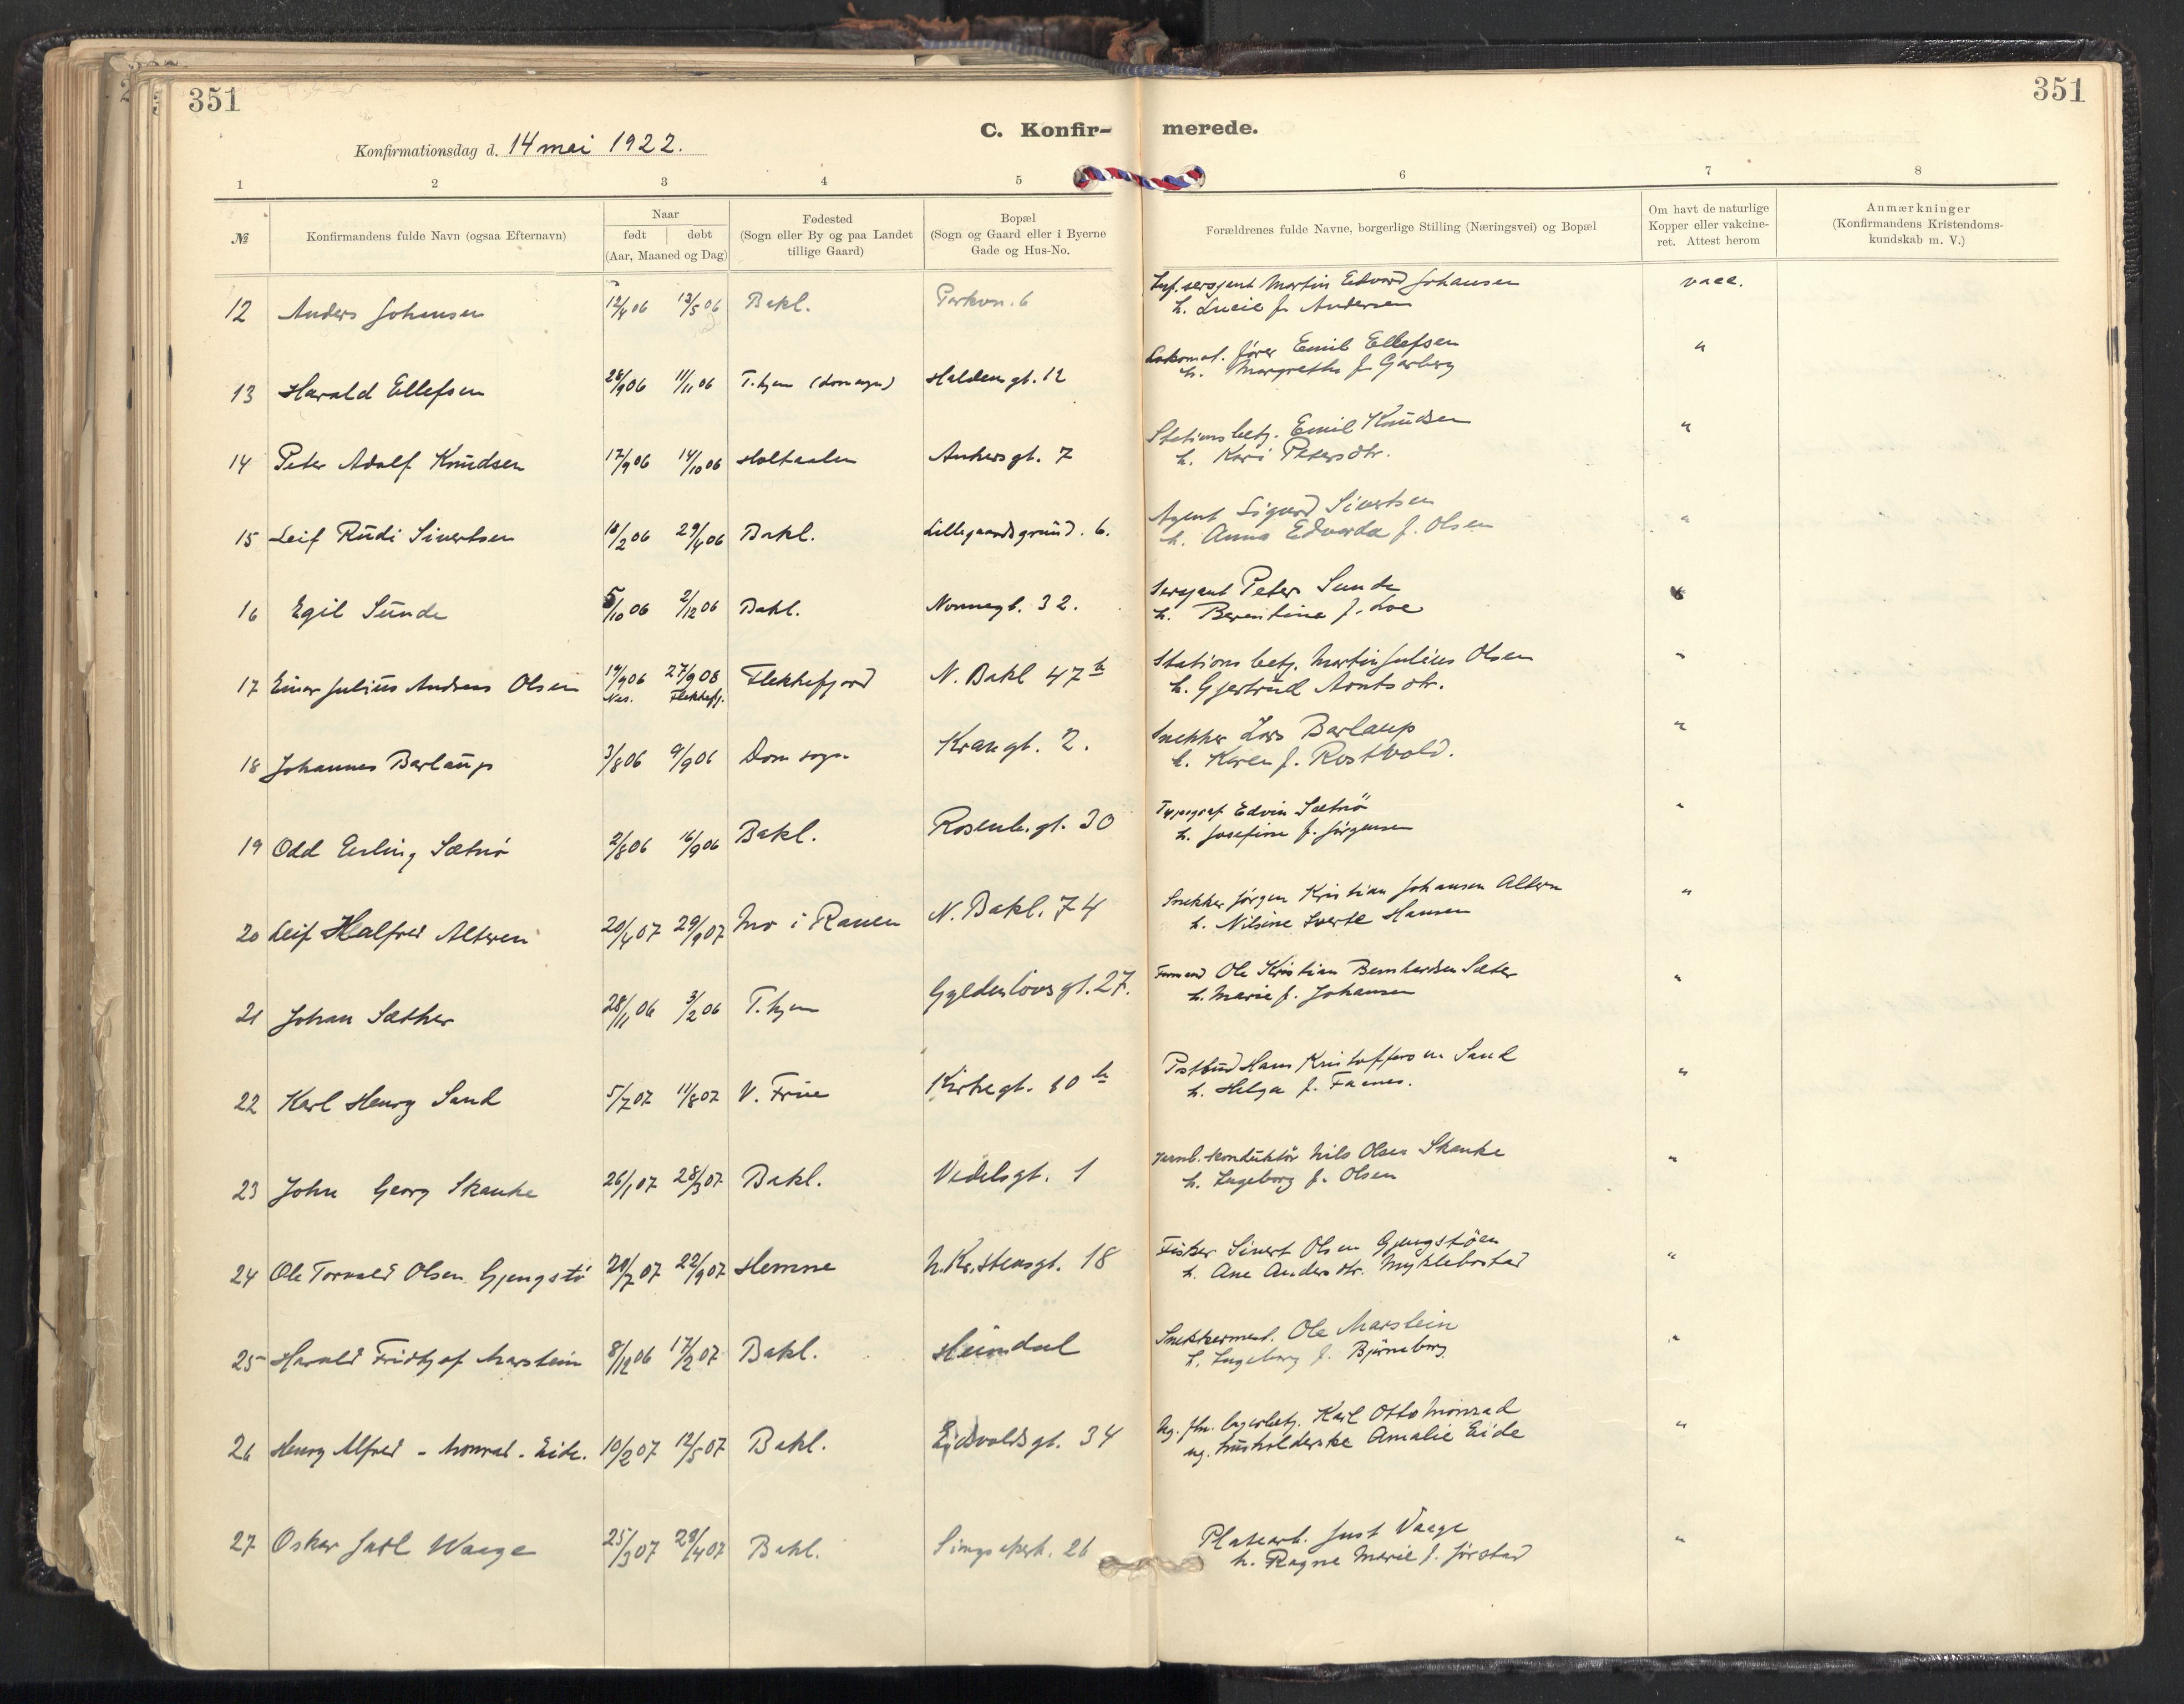 351
351
C. Konfir- merede.
Konfirmationsdag d. 14 mai 1922.
1 2 3 4 5 6 7 8
№
Konfirmandens fulde Navn (ogsaa Efternavn)
Naar
født døbt
(Aar, Maaned og Dag)
Fødested
(Sogn eller By og paa Landet
tillige Gaard)
Bopæl
(Sogn og Gaard eller i Byerne
Gade og Hus-No.
Forældrenes fulde Navne, borgerlige Stilling (Næringsvei) og Bopæl
Om havt de naturlige
Kopper eller vakcine-
ret. Attest herom
Anmærkninger
(Konfirmandens Kristendoms-
kundskab m. V.)
12 Anders Johansen 12/4 06 13/5 06 Bakl. Parkvn. 6
Inf. sersjent Martin Edvard Johansen vacc.
h. Lucie f. Andersen
13 Harald Ellefsen 28/9 06 11/11 06 T.hjem (domsogn) Haldensgt. 12
Lokomot. fører Emil Ellefsen "
h. Margrethe f. Garberg
14 Peter Adolf Knudsen 17/9 06 14/10 06 Holtaalen Ankersgt. 7
Stationsbetj. Emil Knudsen "
h. Kari Petersdtr.
15 Leif Rudi Sivertsen 18/2 06 29/4 06 Bakl. Lillegaardsgrund. 6.
Agent Sigurd Sivertsen "
h. Anna Edvarda f. Olsen
16 Egil Sunde 5/10 06 2/12 06 Bakl. Nonnegt. 32.
Sersjant Peter Sunde "
h. Berentine f. Loe
17 Einar Julius Andreas Olsen 19/9 06 27/9 08 Flekkefjord N. Bakl 47 b
Nes. Flekkefj.
Stationsbetj. Martin Julius Olsen "
h. Gjertrud Arntsdtr.
18 Johannes Barlaup 3/8 06 9/9 06 Domsogn Krangt. 2.
Snekker Lars Barlaup "
h. Karen f. Rostvold.
19 Odd Erling Sætnø 2/8 06 16/9 06 Bakl. Rosenb.gt. 30
Typograf Edvin Sætnø "
h. Josefine f. Jørgensen
20 Leif Halfred Alteren 20/4 07 29/9 07 Mo i Ranen N. Bakl. 74
Snekker Jørgen Kristian Johansen Altern "
h. Nilsine Sverte Hansen
21 Johan Sæther 28/11 06 3/2 06 T.hjem Gyldenløvsgt. 27.
Formand Ole Kristian Bernhardsen Sæter "
h. Marie f. Johansen
22 Karl Henry Sand 5/7 07 11/8 07 V. Frue Kirkegt. 10 b
Postbud Hans Kristoffersen Sand "
h. Helga f. Faanes.
23 John Georg Skanke 26/1 07 28/3 07 Bakl. Vedelsgt. 1
Jernb. konduktör Nils Olsen Skanke "
h. Ingeborg f. Olsen
24 Ole Torvald Olsen Gjengstø 20/7 07 22/9 07 Hemne N. Kr.stensgt. 18
Fisker Sivert Olsen Gjengstøen "
h. Ane Andersdtr. Myklebostad
25 Harald Fridtjof Marstein 8/12 06 17/2 07 Bakl. Heimdal
Snekkermest. Ole Marstein "
h. Ingeborg f. Bjørneborg
26 Henry Alfred - Monrad - Eide. 10/2 07 12/5 07 Bakl. Eidsvoldsgt. 34
Ug. fhv. lagerbetj. Karl Otto Monrad "
ug. husholderske Amalie Eide
27 Oskar Jarl Waage 25/3 07 29/4 07 Bakl. Singsakerb. 26
Platearb. Just Vaage "
h. Ragna Marie f. Jørstad